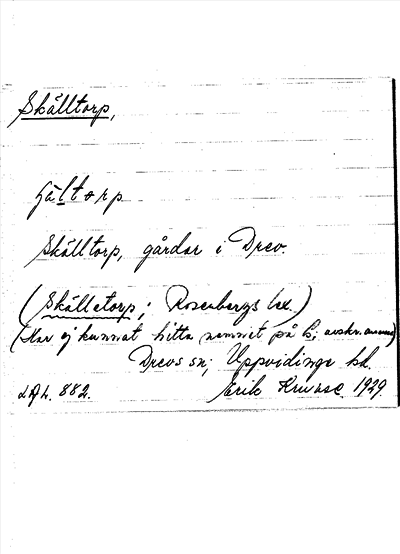 Skälltorp,
hältorp
Skälltorp, gårdar i Drev.
(Skälletorp; Rosenbergs lex.)
(Har ej kunnat hitta namnet på
Drevs sn; Uppvidinge hd.
LAL. 882. Erik Kruuse 1929.